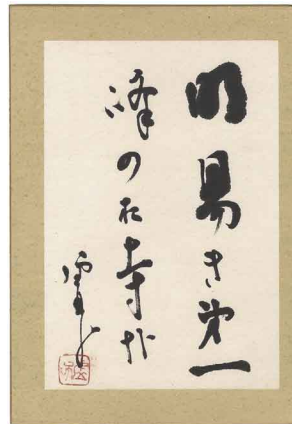 明易き第一
峰のお寺哉